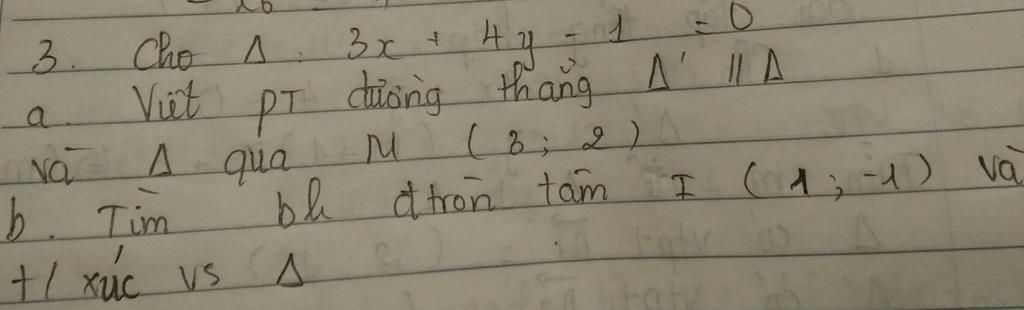 3. Cho Δ: 3x + 4y - 1 = 0
a. Viết PT đường thẳng Δ' // Δ
và Δ qua M (3; 2)
b. Tìm bk đtròn tâm I (1; -1) và
t/ xúc vs Δ